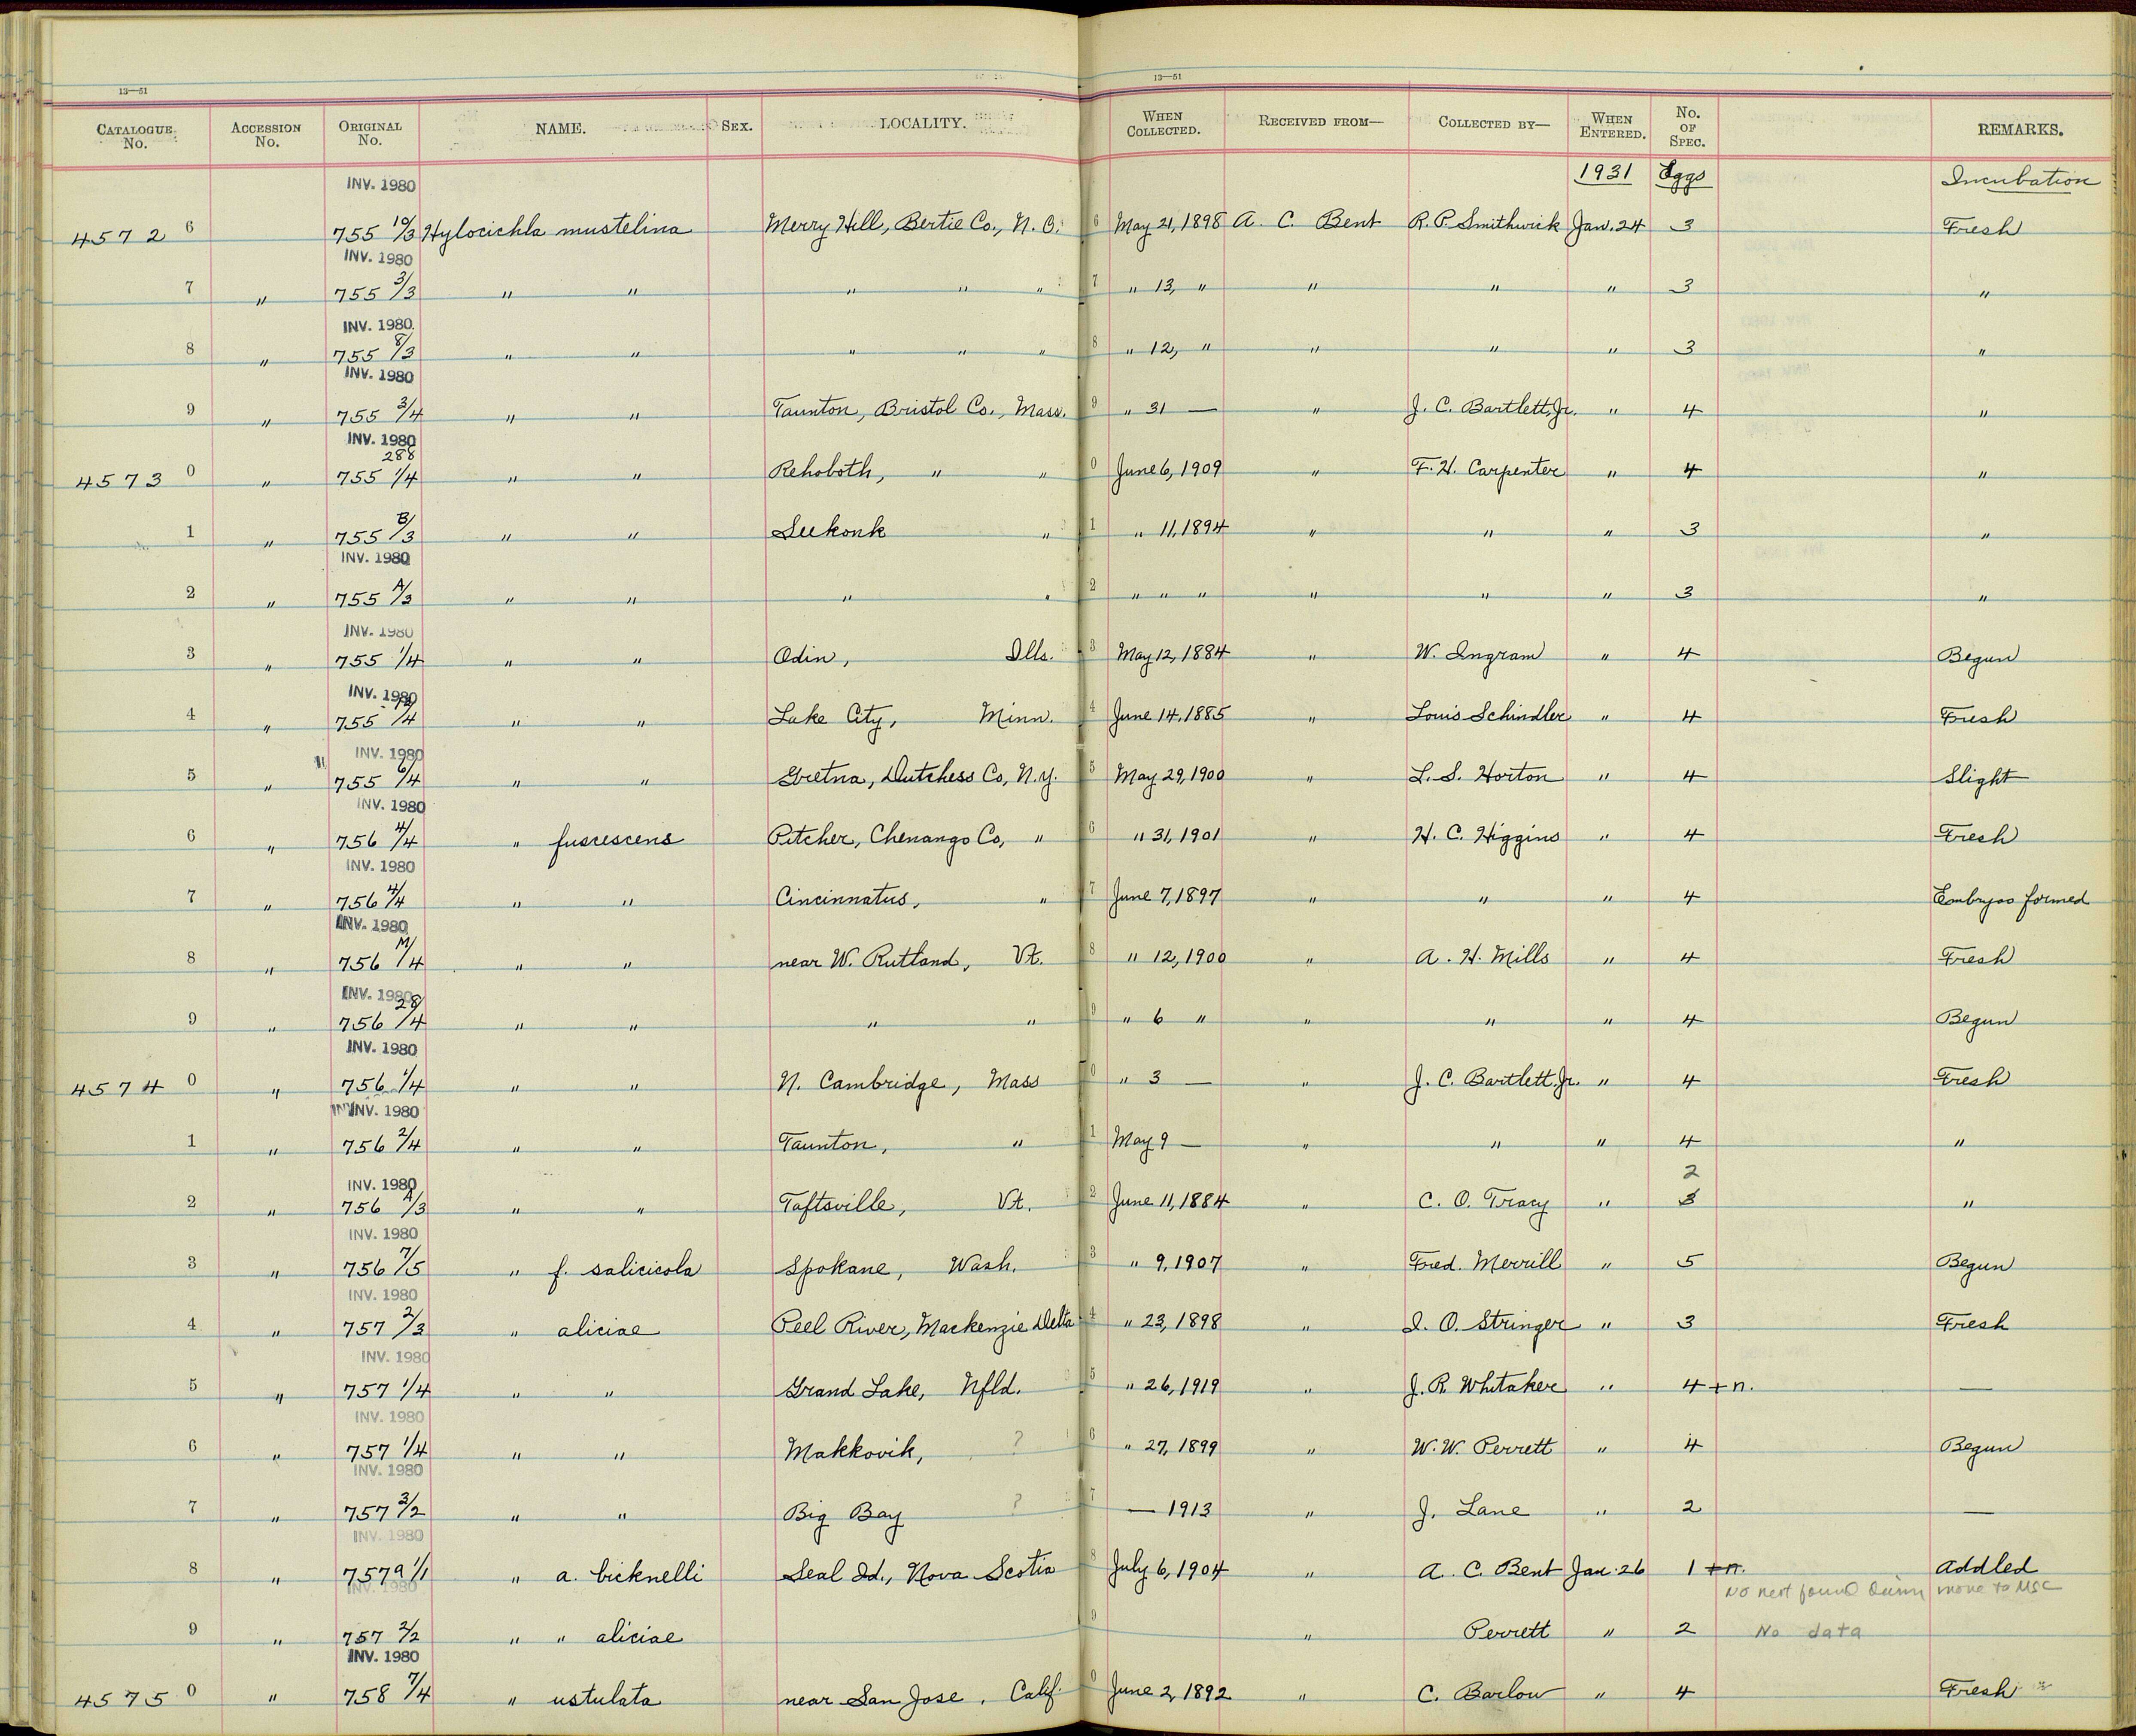 13—51 13—51
CATALOGUE No. ACCESSION No. ORIGINAL No. NAME. SEX. LOCALITY. WHEN COLLECTED. RECEIVED FROM— COLLECTED BY— WHEN ENTERED. No. OF SPEC. REMARKS.
INV. 1980 1931 Eggs Incubation
4572 6 755 10/3 Hylocichla mustelina Merry Hill, Bertie Co., N. C. 6 May 21, 1898 A. C. Bent R. P. Smithwick Jan. 24 3 Fresh
INV. 1980
7 " 755 3/3 " " " " " 7 " 13, " " " " 3 "
INV. 1980
8 " 755 8/3 " " " " " 8 " 12, " " " " 3 "
INV. 1980
9 " 755 3/4 " " Taunton, Bristol Co., Mass. 9 " 31 — " J. C. Bartlett, Jr. " 4 "
INV. 1980
288
4573 0 " 755 1/4 " " Rehoboth, " " 0 June 6, 1909 " F. H. Carpenter " 4 "
1 " 755 B/3 " " Seekonk " 1 " 11, 1894 " " " 3 "
INV. 1980
2 " 755 A/3 " " " " 2 " " " " " " 3 "
INV. 1980
3 " 755 1/4 " " Odin, Ills. 3 May 12, 1884 " W. Ingram " 4 Begun
INV. 1980
4 " 755 /4 " " Lake City, Minn. 4 June 14, 1885 " Louis Schindler " 4 Fresh
INV. 1980
5 " 755 6/4 " " Gretna, Dutchess Co, N.Y. 5 May 29, 1900 " L. S. Horton " 4 Slight
INV. 1980
6 " 756 4/4 " fuscescens Pitcher, Chenango Co, " 6 " 31, 1901 " H. C. Higgins " 4 Fresh
INV. 1980
7 " 756 4/4 " " Cincinnatus, " 7 June 7, 1897 " " " 4 Embryos formed
INV. 1980
8 " 756 M/4 " " near W. Rutland, Vt. 8 " 12, 1900 " A. H. Mills " 4 Fresh
INV. 1980
9 " 756 28/4 " " " " 9 " 6 " " " " 4 Begun
INV. 1980
4574 0 " 756 1/4 " " N. Cambridge, Mass 0 " 3 — " J. C. Bartlett, Jr. " 4 Fresh
INV. 1980
1 " 756 2/4 " " Taunton, " 1 May 9 — " " " 4 "
INV. 1980 2
2 " 756 A/3 " " Taftsville, Vt. 2 June 11, 1884 " C. O. Tracy " 3 "
INV. 1980
3 " 756 7/5 " f. salicicola Spokane, Wash. 3 " 9, 1907 " Fred. Merrill " 5 Begun
INV. 1980
4 " 757 2/3 " aliciae Peel River, Mackenzie Delta 4 " 23, 1898 " I. O. Stringer " 3 Fresh
INV. 1980
5 " 757 1/4 " " Grand Lake, Nfld. 5 " 26, 1919 " J. R. Whitaker " 4 + n. —
INV. 1980
6 " 757 1/4 " " Makkovik, ? 6 " 27, 1899 " W. W. Perrett " 4 Begun
INV. 1980
7 " 757 3/2 " " Big Bay ? 7 — 1913 " J. Lane " 2 —
INV. 1980
8 " 757a 1/1 " a. bicknelli Seal Id., Nova Scotia 8 July 6, 1904 " A. C. Bent Jan. 26 1 + n. Addled
INV. 1980 No nest found during move to MSC
9 " 757 2/2 " " aliciae 9 " Perrett " 2 No data
INV. 1980
4575 0 " 758 7/4 " ustulata near San Jose, Calif. 0 June 2, 1892 " C. Barlow " 4 Fresh